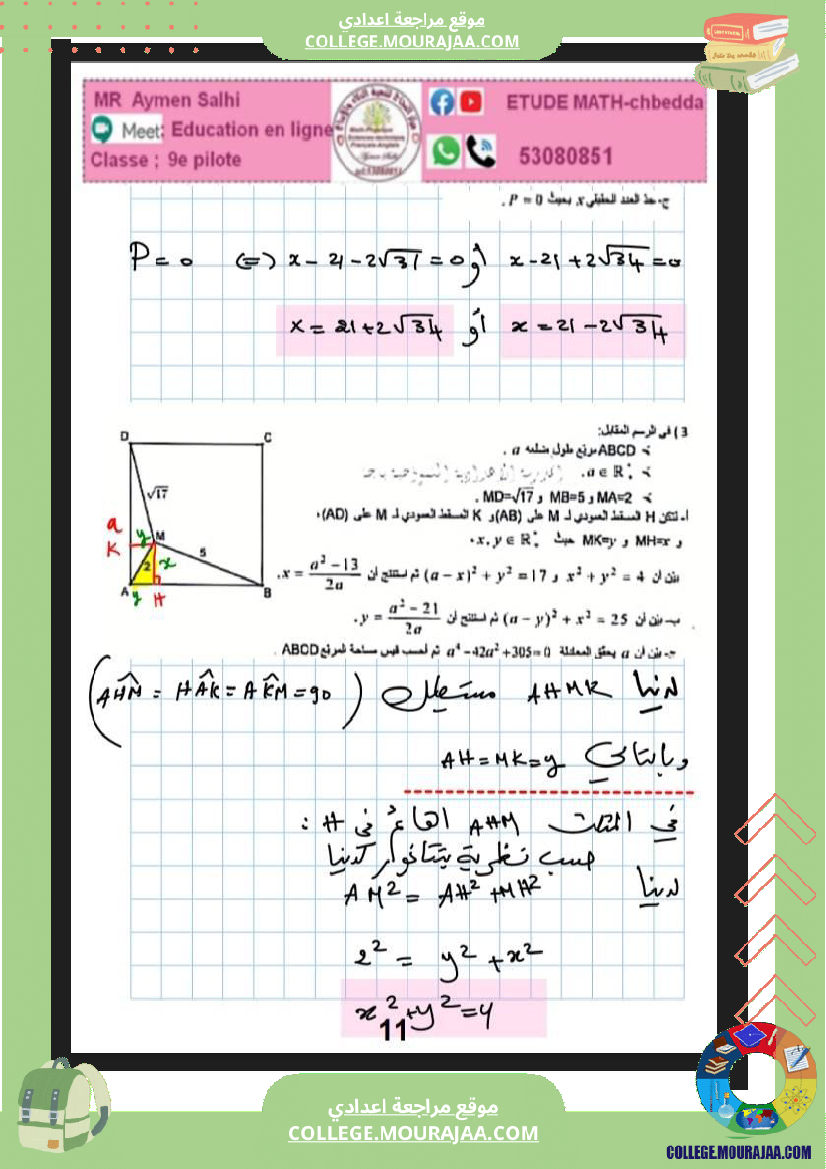 موقع مراجعة اعدادي
COLLEGE.MOURAJAA.COM
MR Aymen Salhi
Meet: Education en ligne
Classe ; 9e pilote
ETUDE MATH-chbedda
53080851
ج- جد العدد الحقيقي x بحيث P = 0 .
P = 0 ⇔ x - 21 - 2√34 = 0 أو x - 21 + 2√34 = 0
x = 21 + 2√34 أو x = 21 - 2√34
3 ) في الرسم المقابل:
ABCD مربع طول ضلعه a .
a ∈ ℝ*₊ .
MA=2 و MB=5 و MD=√17 .
أ- لتكن H المسقط العمودي لـ M على (AB) و K المسقط العمودي لـ M على (AD)
و MH=x و MK=y حيث x, y ∈ ℝ*₊ .
بين أن x² + y² = 4 و (a – x)² + y² = 17 ثم استنتج أن x = (a² – 13)/2a .
ب- بين أن (a – y)² + x² = 25 ثم استنتج أن y = (a² – 21)/2a .
ج- بين أن a يحقق المعادلة a⁴ – 42a² + 305 = 0 ثم أحسب قيس مساحة المربع ABCD .
D
C
√17
a
K
y
M
2
x
5
A
y
H
B
لدينا AHMK مستطيل (AĤM = HÂK = AK̂M = 90)
وبالتالي AH = MK = y
في المثلث AHM القائم في H :
حسب نظرية بيتاغور لدينا
لدينا AM² = AH² + MH²
2² = y² + x²
x² + y² = 4
11
موقع مراجعة اعدادي
COLLEGE.MOURAJAA.COM
COLLEGE.MOURAJAA.COM